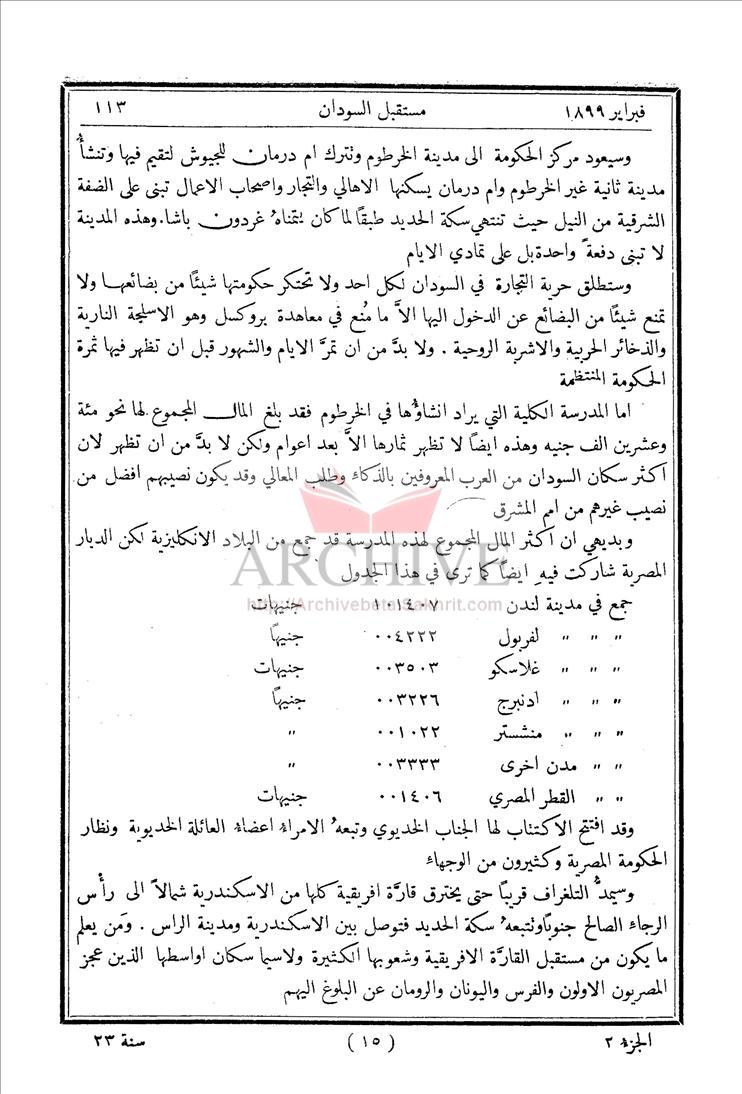 فبراير ١٨٩٩ مستقبل السودان ١١٣
وسيعود مركز الحكومة الى مدينة الخرطوم وتترك ام درمان للجيوش لتقيم فيها وتنشأُ
مدينة ثانية غير الخرطوم وام درمان يسكنها الاهالي والتجار واصحاب الاعمال تبنى على الضفة
الشرقية من النيل حيث تنتهي سكة الحديد طبقاً لما كان يتمناهُ غردون باشا. وهذه المدينة
لا تبنى دفعةً واحدة بل على تمادي الايام
وستطلق حرية التجارة في السودان لكل احد ولا تحتكر حكومتها شيئاً من بضائعها ولا
تمنع شيئاً من البضائع عن الدخول اليها الاَّ ما مُنع في معاهدة بروكسل وهو الاسلحة النارية
والذخائر الحربية والاشربة الروحية . ولا بدَّ من ان تمرَّ الايام والشهور قبل ان تظهر فيها ثمرة
الحكومة المنتظمة
اما المدرسة الكلية التي يراد انشاؤُها في الخرطوم فقد بلغ المال المجموع لها نحو مئة
وعشرين الف جنيه وهذه ايضاً لا تظهر ثمارها الاَّ بعد اعوام ولكن لا بدَّ من ان تظهر لان
اكثر سكان السودان من العرب المعروفين بالذكاء وطلب المعالي وقد يكون نصيبهم افضل من
نصيب غيرهم من امم المشرق
وبديهي ان اكثر المال المجموع لهذه المدرسة قد جمع من البلاد الانكليزية لكن الديار
المصرية شاركت فيه ايضاً كما ترى في هذا الجدول
ARCHIVE
http://Archivebeta.Sakhrit.com
جمع في مدينة لندن ١٠١٤٠٧ جنيهات
" " " لفربول ٠٠٤٢٢٢ جنيهاً
" " " غلاسكو ٠٠٣٥٠٣ جنيهات
" " " ادنبرج ٠٠٣٢٢٦ جنيهاً
" " " منشستر ٠٠١٠٢٢ "
" " مدن اخرى ٠٠٣٣٣٣ "
" " القطر المصري ٠٠١٤٠٦ جنيهات
وقد افتتح الاكتتاب لها الجناب الخديوي وتبعهُ الامراء اعضاء العائلة الخديوية ونظار
الحكومة المصرية وكثيرون من الوجهاء
وسيمدُّ التلغراف قريباً حتى يخترق قارَّة افريقية كلها من الاسكندرية شمالاً الى رأْس
الرجاء الصالح جنوباً وتتبعهُ سكة الحديد فتوصل بين الاسكندرية ومدينة الراس . ومَن يعلم
ما يكون من مستقبل القارَّة الافريقية وشعوبها الكثيرة ولاسيما سكان اواسطها الذين عجز
المصريون الاولون والفرس واليونان والرومان عن البلوغ اليهم
الجزء ٢ ( ١٥ ) سنة ٢٣